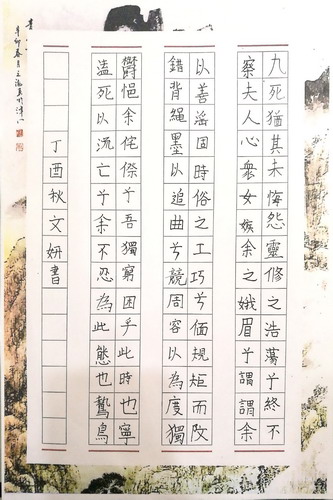 九死猶其未悔怨靈修之浩蕩兮終不
察夫人心衆女嫉余之娥眉兮謂謂余
以善滛固時俗之工巧兮偭規矩而改
錯背繩墨以追曲兮競周容以為度獨
欝悒余侘傺兮吾獨窮困乎此時也寧
溘死以流亡兮余不忍為此態也鷙鳥
丁酉秋文妍書
辛卯春月